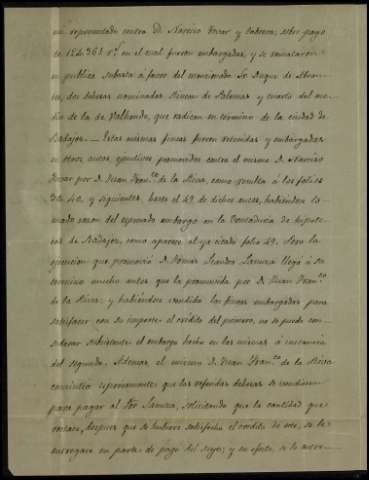 mi representado contra D. Narciso Tovar y Cabrera, sobre pago
de 124.361 r.s en el cual fueron embargadas, y se remataron
en publica subasta á favor del mencionado Sr. Duque de Abran-
tes, dos dehesas nominadas Rincon de Palomas y cuarto del me-
dio de la de Valhondo, que radican en termino de la ciudad de
Badajoz. — Estas mismas fincas fueron retenidas y embargadas
en otros autos, ejecutivos promovidos contra el mismo D. Narciso
Tovar por D. Juan Fran.co de la Riva, como resulta á los folios
40 y siguientes, hasta el 49 de dichos autos, habiendose to-
mado razon del espresado embargo en la Contaduria de hipote-
cas de Badajoz, como aparece al ya citado folio 49. Pero la
ejecucion que promovió D. Tomas Leandro llegó á su
termino mucho antes que la promovida por D. Juan Fran.co
de la Riva: y habiendose vendido las fincas embargadas para
satisfacer con su importe el credito del primero, no se puede con-
siderar subsistente el embargo hecho en las mismas á instancia
del segundo. Ademas, el mismo D. Juan Fran.co de la Riva
consintió espresamente que las referidas dehesas se vendieran
para pagar al Sor. solicitando que la cantidad que
restase, despues que se hubiese satisfecho el credito de este, se le
entregara en parte de pago del suyo; y en efecto, se le